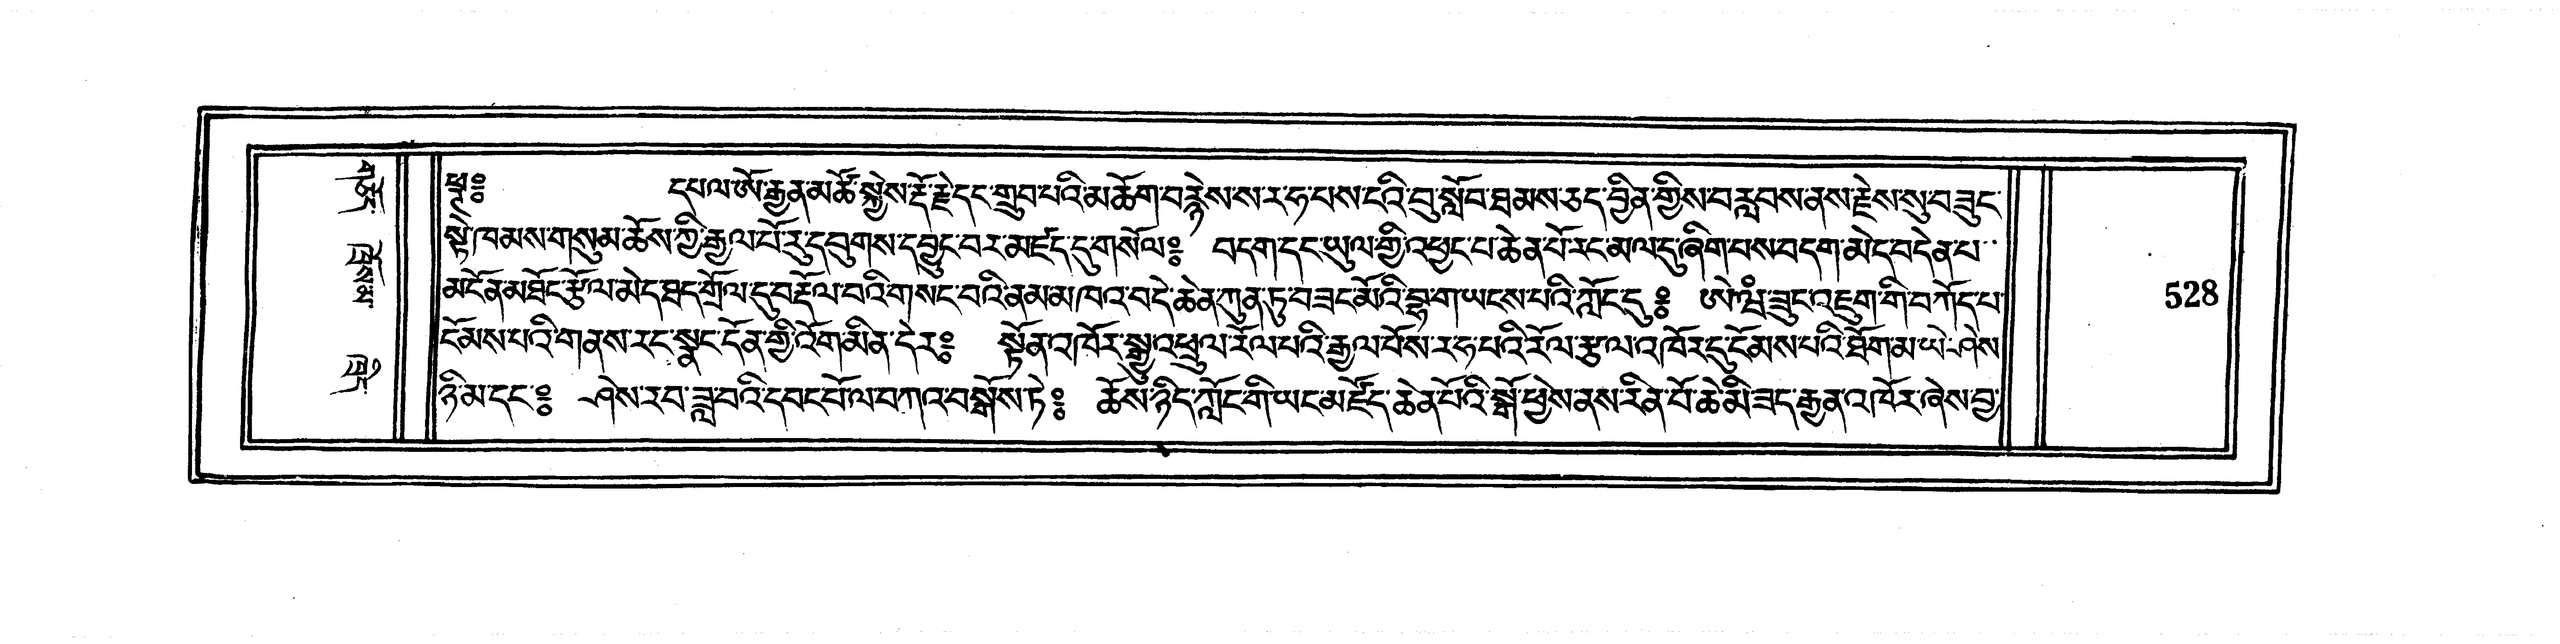 དཔལ་ཨོ་རྒྱན་མཚོ་སྐྱེས་རྡོ་རྗེ་དང་གྲུབ་པའི་མཆོག་བརྙེས་ས་ར་ཧ་པས་ངའི་བུ་སློབ་ཐམས་ཅད་བྱིན་གྱིས་བརླབས་ནས་རྗེས་སུ་བཟུང་
སྟེ་ཁམས་གསུམ་ཆོས་ཀྱི་རྒྱལ་པོ་རུ་དབུགས་དབྱུང་བར་མཛད་དུ་གསོལ༔ བདག་དང་ཡུལ་གྱི་འཕྱང་པ་ཆེན་པོ་རང་མལ་དུ་ཞིག་པས་བདག་མེད་བདེན་པ་
མངོན་མཐོང་རྩོལ་མེད་ཐད་གྲོལ་དུ་བརྡོལ་བའི་གསང་བའི་ནམ་མཁའ་བདེ་ཆེན་ཀུན་ཏུ་བཟང་མོའི་བྷ་ག་ཡངས་པའི་ཀློང་དུ༔ ཨེ་ཝཾ་ཟུང་འཇུག་གི་བཀོད་པ་
ངོམས་པའི་གནས་རང་སྣང་དོན་གྱི་འོག་མིན་དེར༔ སྟོན་འཁོར་སྒྱུ་འཕྲུལ་རོལ་པའི་རྒྱལ་པོས་ར་ཧ་པའི་རོལ་རྩལ་འཁོར་དུ་ངོམས་པའི་ཐོག་མ་ཡེ་ཤེས་
ཉི་མ་དང་༔ ཤེས་རབ་ཟླ་བའི་དབང་པོ་ལ་བཀའ་བསྒོས་ཏེ༔ ཆོས་ཉིད་ཀློང་གི་ཡང་མཛོད་ཆེན་པོའི་སྒོ་ཕྱེས་ནས་རིན་པོ་ཆེ་མི་ཟད་རྒྱན་འཁོར་ཞེས་བྱ་
528